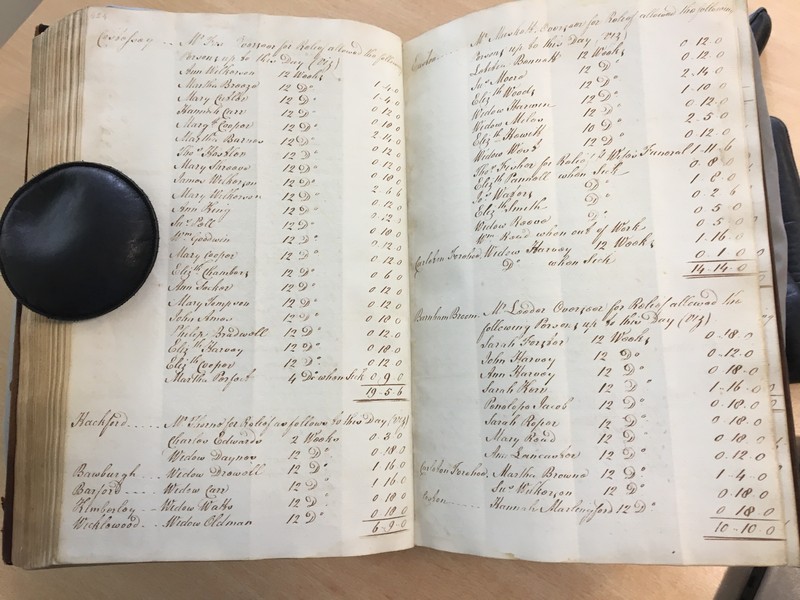 Costessey ... Mr Fox Overseer for Relief allowed the following
Persons up to this Day (Viz)
Ann Wilkerson 12 Weeks 1 - 4 - 0
Martha Breeze 12 Do 1 - 4 - 0
Mary 12 Do 0 12 0
Hannah Carr 12 Do 0 18 0
Mary Cooper 12 Do
Martha Barnes 12 Do 0 12 0
Thos 12 Do 0 12 0
Mary 12 Do 0 18 0
James Wilkerson 12 Do
Mary Wilkerson 12 Do 0 12 0
Ann King 12 Do 0 12 0
12 Do 0 18 0
Wm Goodwin 12 Do 0 12 0
Mary Cooper 12 Do 0 12 0
Elizth Chambers 12 Do 0 6 0
Ann 12 Do 0 12 0
Mary Timpson 12 Do 0 18 0
John Amos 12 Do 0 18 0
Philip Bradwell 12 Do 0 12 0
Elizth Harvey 12 Do 0 18 0
Elizth Cooper 12 Do 0 12 0
Martha Parfect 4 Do when Sick 0 . 9 . 0
19 - 5 . 6
Hackford .... Mr for Relief as follows to this Day (Viz)
Charles Edwards 2 Weeks 0 . 3 . 0
Widow Daynes 12 Do 0 . 18 . 0
Bawburgh ... Widow Drewell 12 Do 1 16 0
Barford .... Widow Carr 12 Do 1 16 0
Kimberley ... Widow Watts 12 Do 0 18 0
Wicklewood ... Widow Oldman 12 Do 0 18 0
6 - 9 . 0
Easton .... Mr Marshall Overseer for Relief allowed the following
Persons up to this Day (Viz)
Bennett 12 Weeks 0 12 0
Moore 12 Do 0 12 0
Elizth Woods 12 Do 2 - 14 - 0
Widow 12 Do 1 - 10 - 0
Widow Miles 12 Do 0 12 0
Elizth Howell 10 Do 2 - 5 - 0
Widow West 12 Do 0 12 0
Thos Fisher for Relief & Wifes Funeral 1 - 11 - 6
Elizth Pandall when Sick 0 8 0
Do 1 - 8 - 0
Elizth Smith Do 0 - 2 - 6
Widow Do 0 - 5 - 0
Wm Rand when out of Work 0 - 5 - 0
Carleton Forehoe Widow Harvey 12 Weeks 1 - 16 - 0
Do when Sick 0 1 0
14 - 14 - 0
Barnham Broom. Mr Loader Overseer for Relief allowed the
following Persons up to this Day (Viz)
Sarah Forster 12 Weeks 0 . 18 . 0
John Harvey 12 Do 0 - 12 . 0
Ann Harvey 12 Do 0 . 18 . 0
Sarah Kerr 12 Do 1 - 16 - 0
Penelope Jacob 12 Do 0 - 18 . 0
Sarah Roper 12 Do 0 . 18 . 0
Mary Road 12 Do 0 18 0
Ann Lancaster 12 Do 0 . 12 0
Carleton Forehoe. Martha Browne 12 Do 1 - 4 - 0
Wilkerson 12 Do 0 . 18 . 0
Hannah Martingford 12 Do 0 18 0
10 - 10 - 0